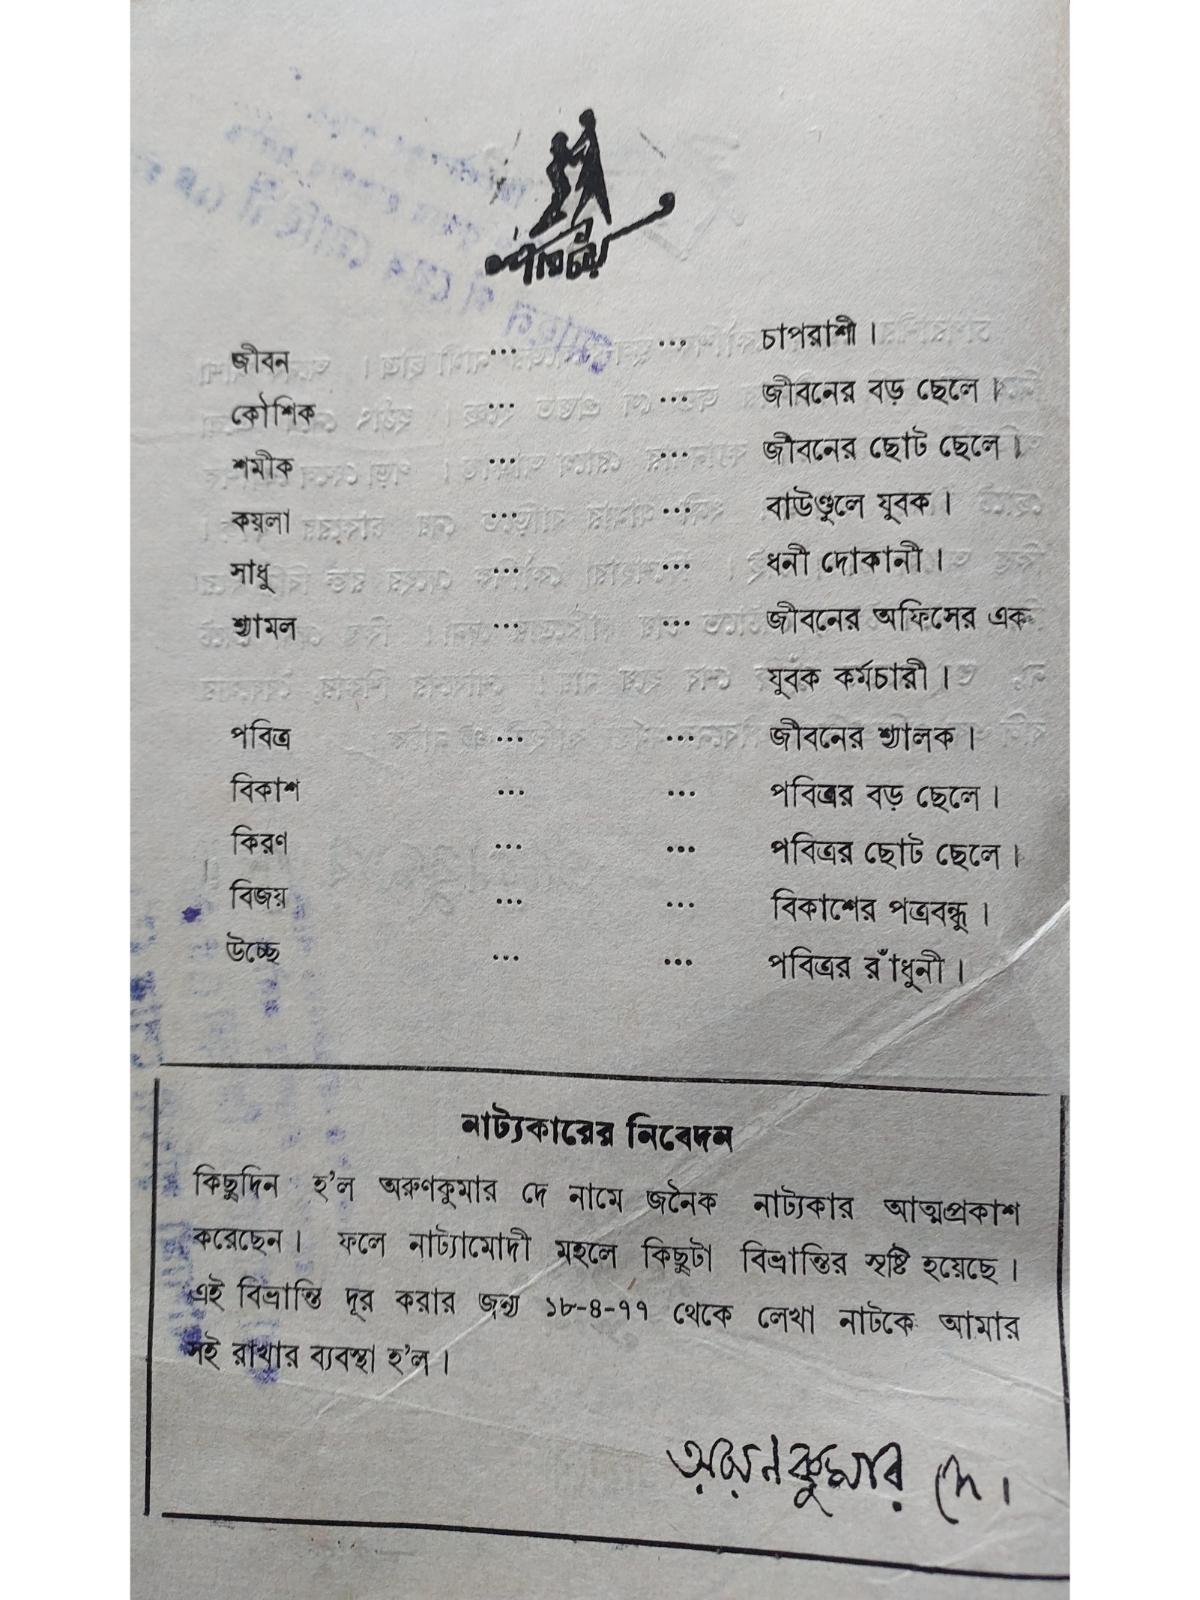 পরিচয়
জীবন ... ... চাপরাশী।
কৌশিক ... ... জীবনের বড় ছেলে।
শমীক ... ... জীবনের ছোট ছেলে।
কয়লা ... ... বাউণ্ডুলে যুবক।
সাধু ... ... ধনী দোকানী।
শ্যামল ... ... জীবনের অফিসের এক
যুবক কর্মচারী।
পবিত্র ... ... জীবনের শ্যালক।
বিকাশ ... ... পবিত্রর বড় ছেলে।
কিরণ ... ... পবিত্রর ছোট ছেলে।
বিজয় ... ... বিকাশের পত্রবন্ধু।
উচ্ছে ... ... পবিত্রর রাঁধুনী।
নাট্যকারের নিবেদন
কিছুদিন হ'ল অরুণকুমার দে নামে জনৈক নাট্যকার আত্মপ্রকাশ
করেছেন। ফলে নাট্যামোদী মহলে কিছুটা বিভ্রান্তির সৃষ্টি হয়েছে।
এই বিভ্রান্তি দূর করার জন্য ১৮-৪-৭৭ থেকে লেখা নাটকে আমার
সই রাখার ব্যবস্থা হ'ল।
কুমার দে।